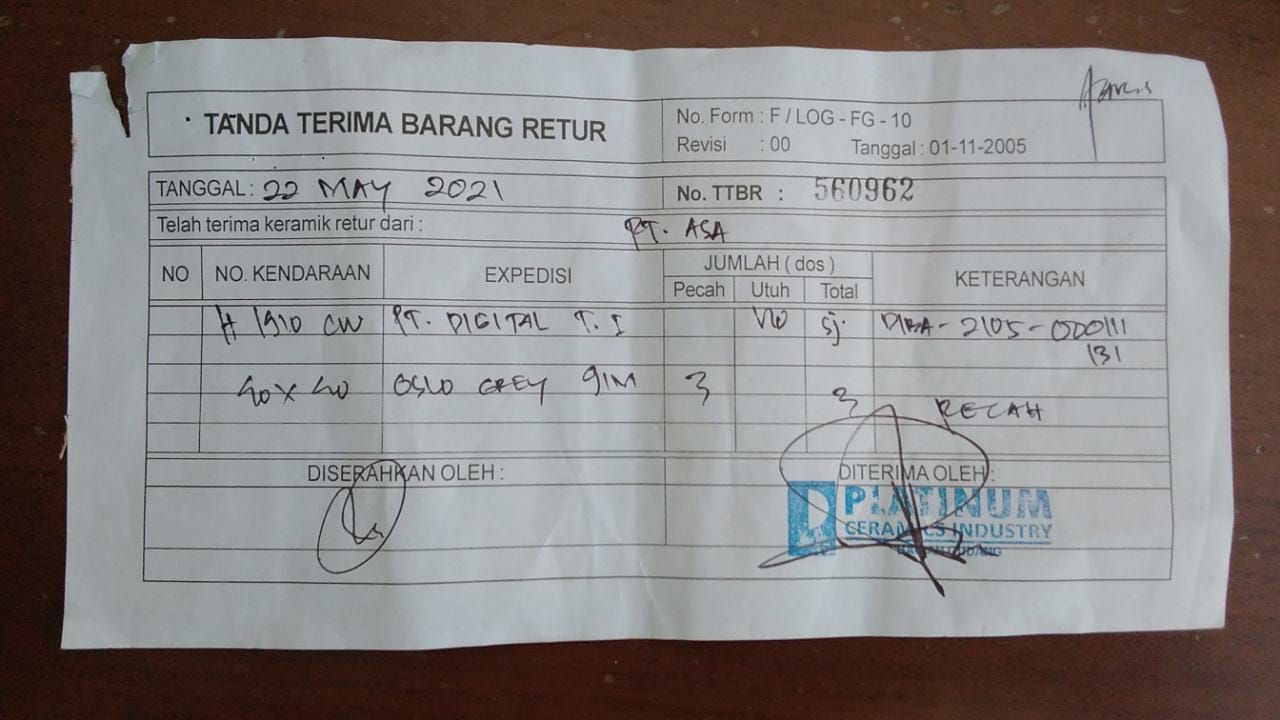 TANDA TERIMA BARANG RETUR
No. Form : F / LOG - FG - 10
Revisi : 00 Tanggal : 01-11-2005
TANGGAL : 22 MAY 2021 No. TTBR : 560962
Telah terima keramik retur dari : PT. ASA
NO NO. KENDARAAN EXPEDISI JUMLAH ( dos ) KETERANGAN
Pecah Utuh Total
H 1910 CW PT. DIGITAL T. I NO SJ.
131
40 X 40 OSLO GREY 91M 3 3
PECAH
DISERAHKAN OLEH : DITERIMA OLEH :
PLATINUM
CERAMICS INDUSTRY